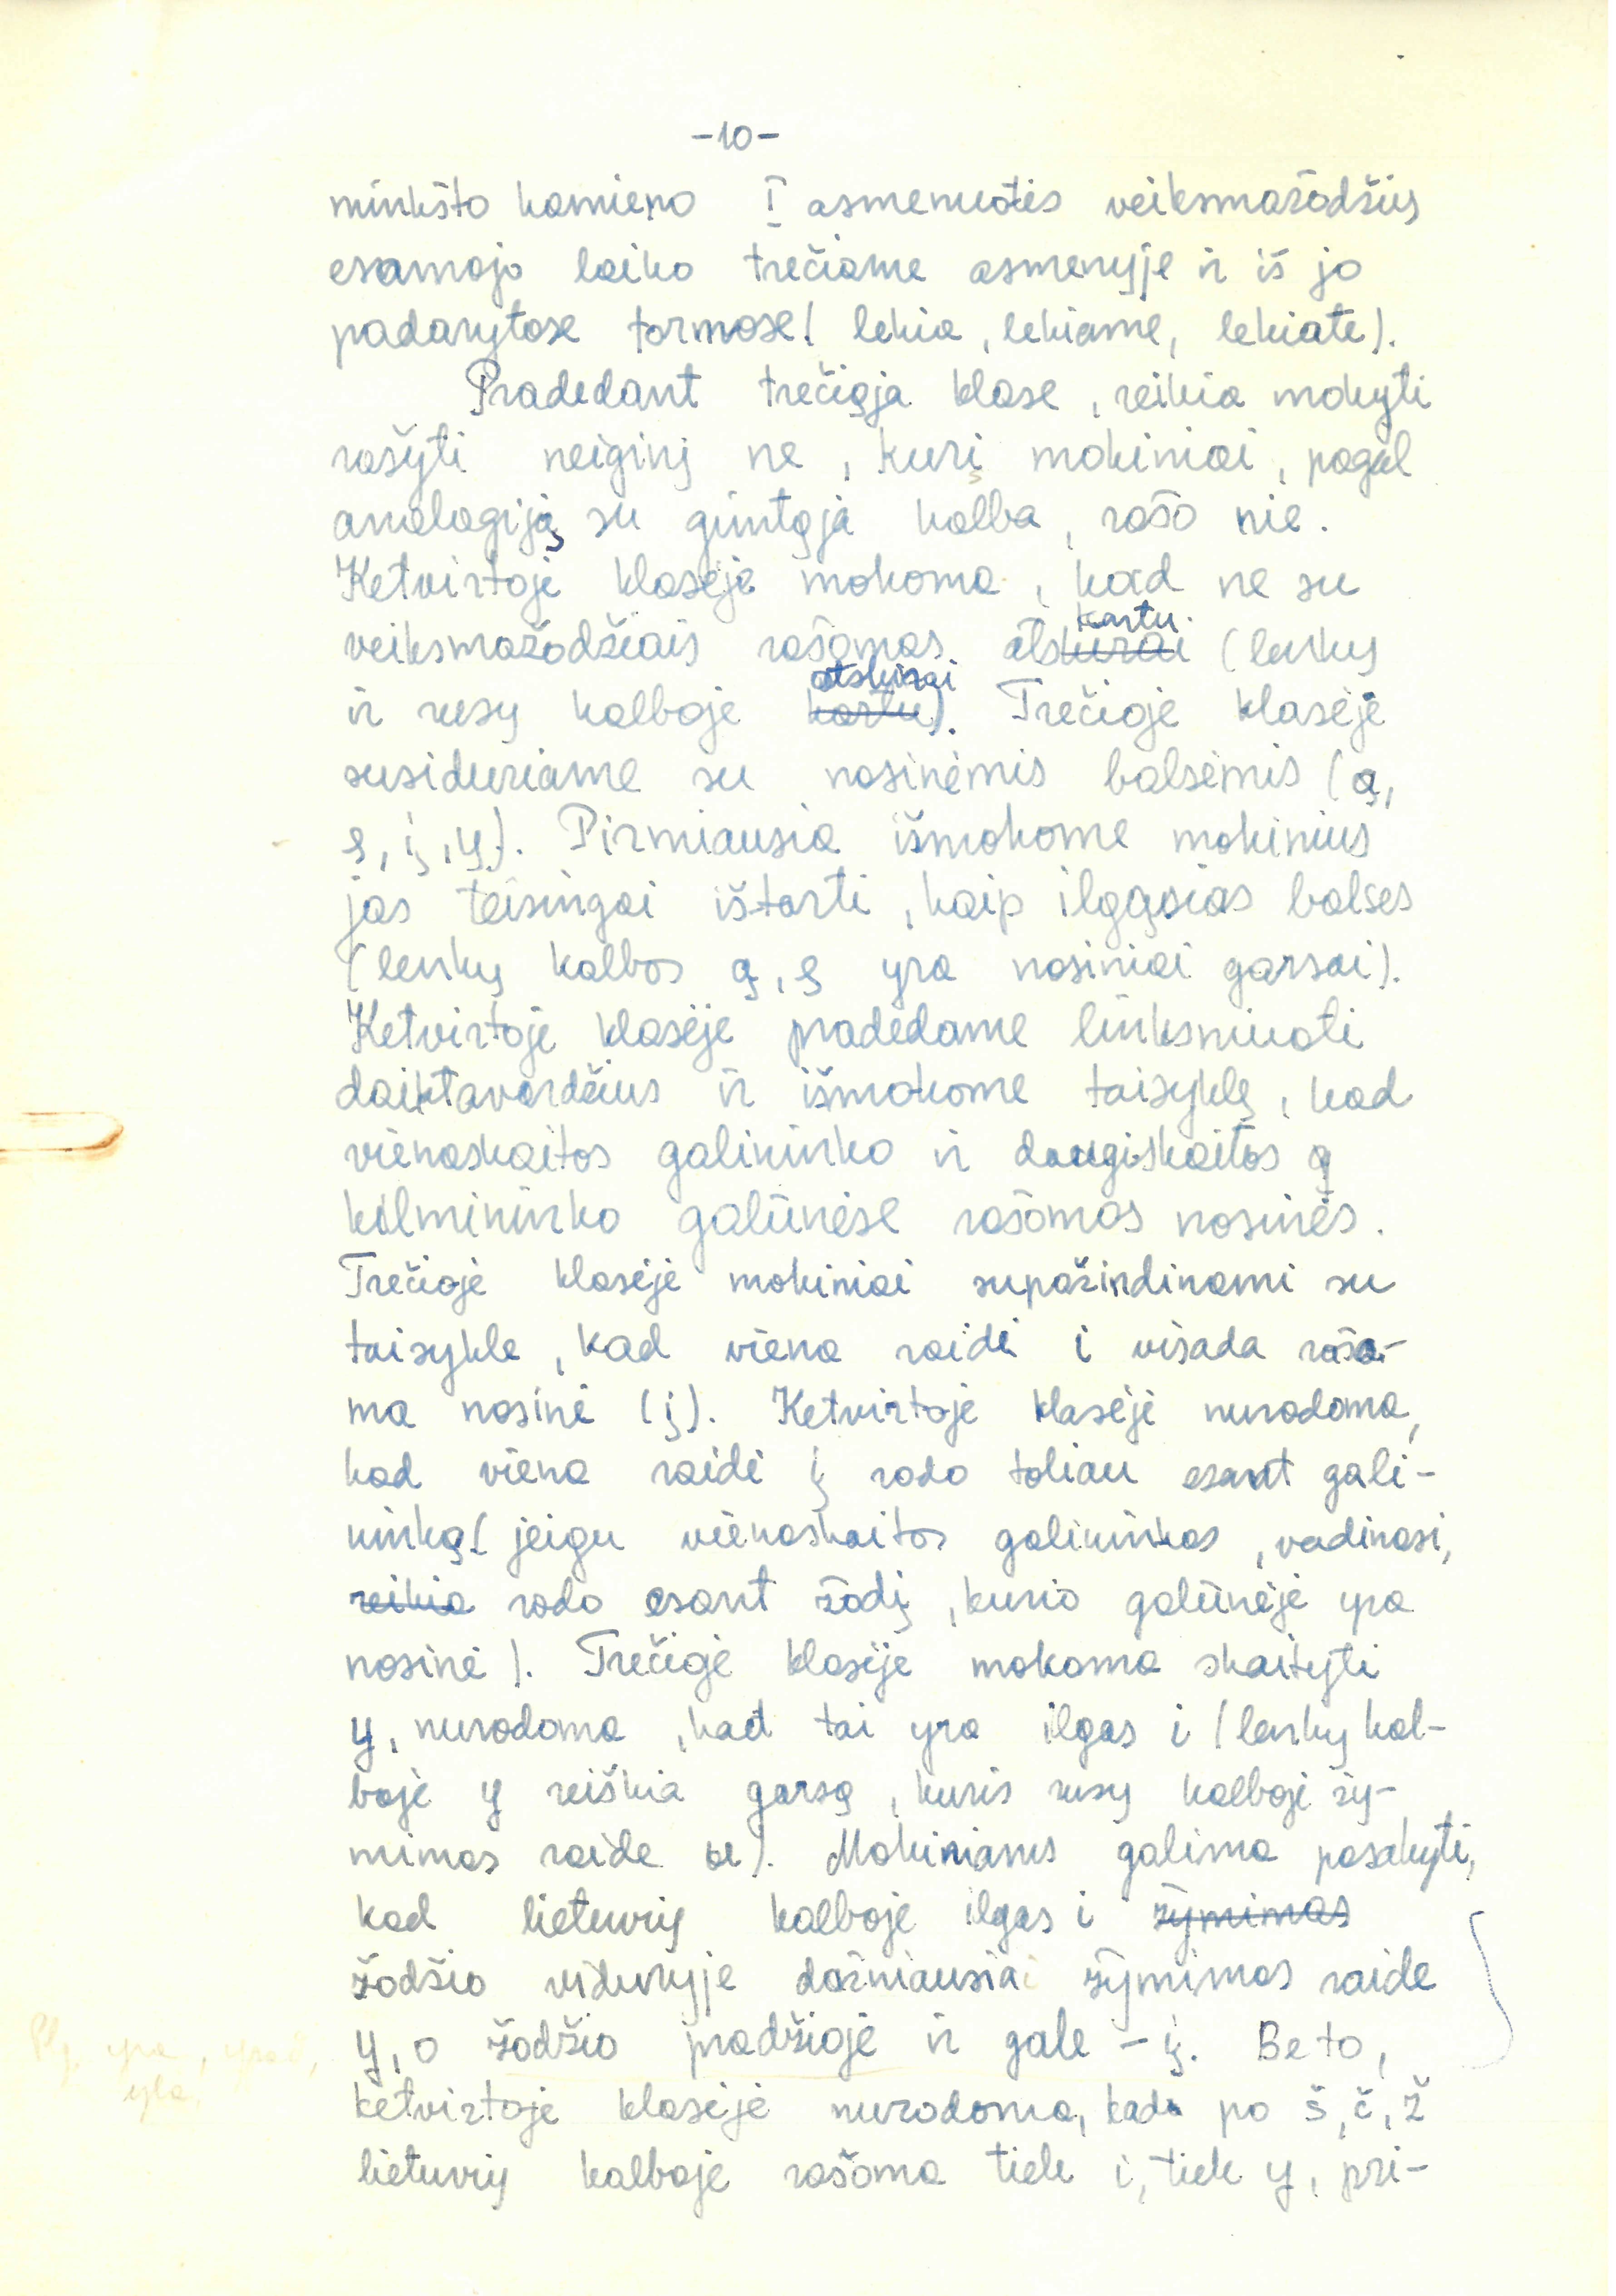 -10-
minkšto kamieno I asmenuotės veiksmažodžių
esamojo laiko trečiame asmenyje ir iš jo
padarytose formose (lekia, lekiame, lekiate).
Pradedant trečiąja klase, reikia mokyti
rašyti neiginį ne, kurį mokiniai, pagal
analogiją su gimtąja kalba, rašo nie.
Ketvirtoje klasėje mokoma, kad ne su
veiksmažodžiais rašomas atskirai kartu (lenkų
ir rusų kalboje kartu atskirai). Trečioje klasėje
susiduriame su nosinėmis balsėmis (ą,
ę, į, ų). Pirmiausia išmokome mokinius
jas teisingai ištarti, kaip ilgąsias balses
(lenkų kalbos ą, ę yra nosiniai garsai).
Ketvirtoje klasėje pradedame linksniuoti
daiktavardžius ir išmokome taisyklę, kad
vienaskaitos galininko ir daugiskaitos
kilmininko galūnėse rašomos nosinės.
Trečioje klasėje mokiniai supažindinami su
taisykle, kad viena raidė i visada rašo-
ma nosinė (į). Ketvirtoje klasėje nurodoma,
kad viena raidė į rodo toliau esant gali-
ninką (jeigu vienaskaitos galininkas, vadinasi,
reikia rodo esant žodį, kurio galūnėje yra
nosinė). Trečioje klasėje mokoma skaityti
y, nurodoma, kad tai yra ilgas i (lenkų kal-
boje y reiškia garsą, kuris rusų kalboje žy-
mimas raide ы). Mokiniams galima pasakyti,
kad lietuvių kalboje ilgas i žymimas
žodžio viduryje dažniausiai žymimas raide
y, o žodžio pradžioje ir gale – į. Be to,
ketvirtoje klasėje nurodoma, kad po š, č, ž
lietuvių kalboje rašoma tiek i, tiek y, pri-
yra,
yla,